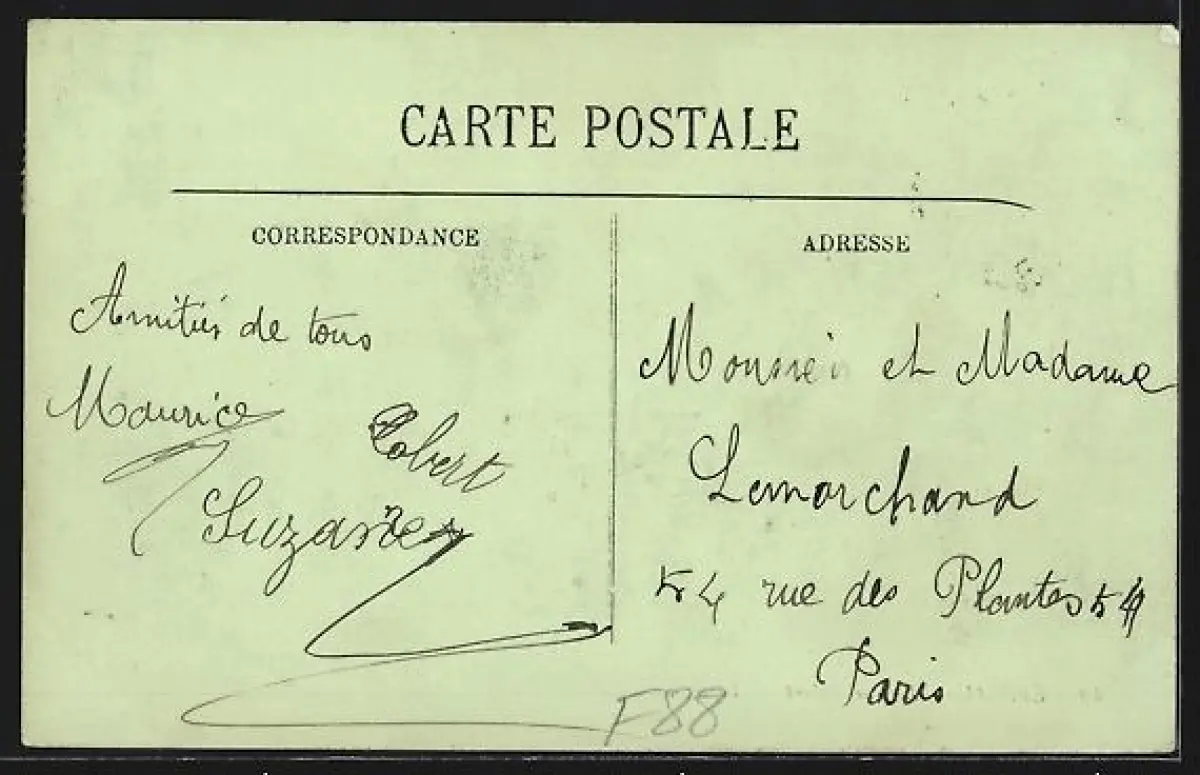 CARTE POSTALE
CORRESPONDANCE
Amitiés de tous
Maurice
Robert
Suzanne
ADRESSE
Monsieur et Madame
Lemarchand
54 rue des Plantes 54
Paris
F88